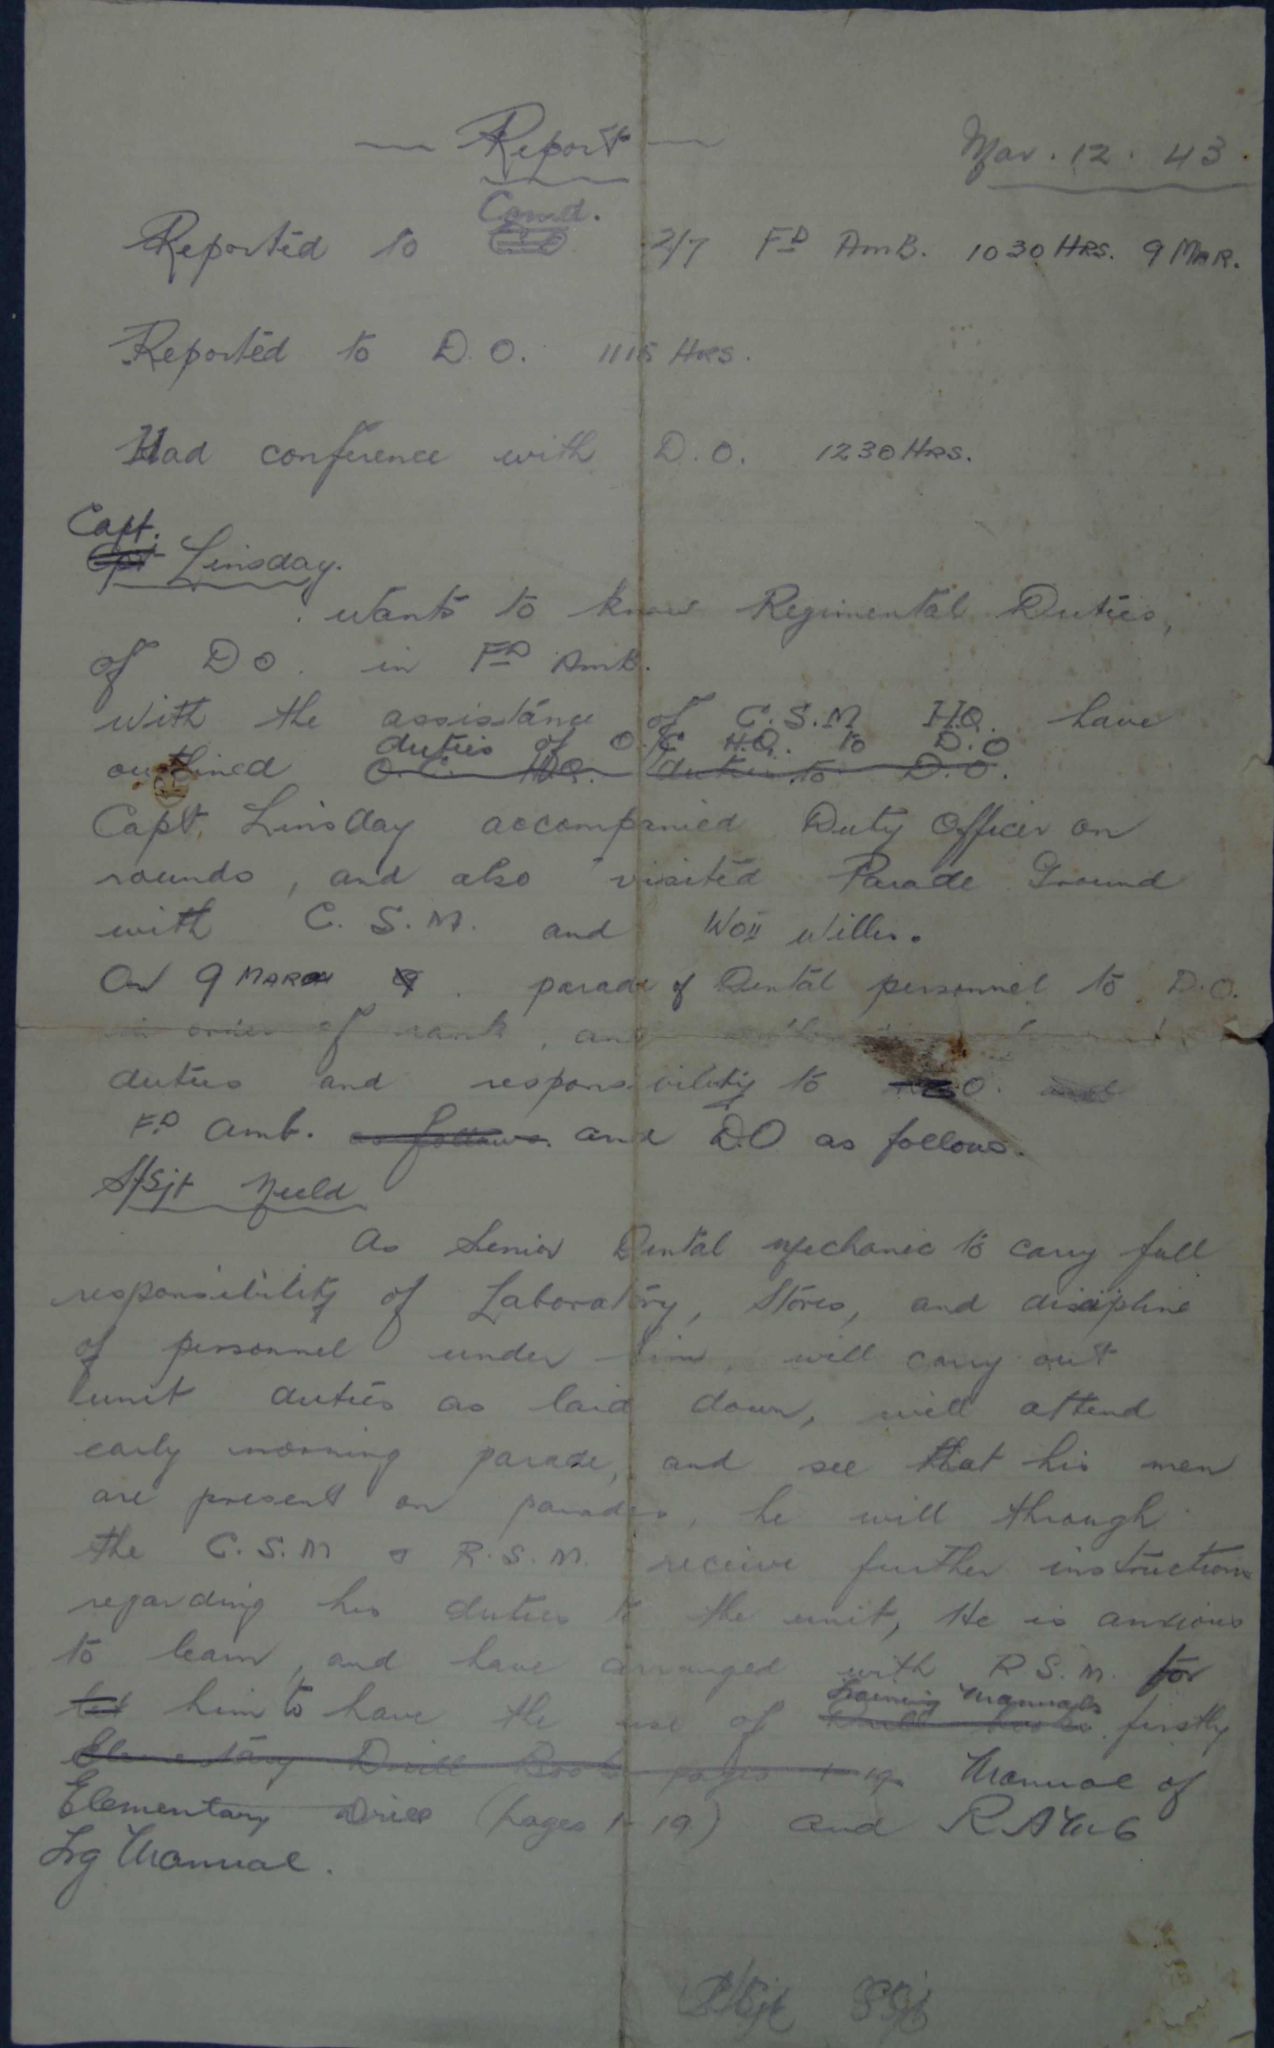 Report
Mar. 12. 43.
Comd.
Reported to 2/7 Fᴰ AmB. 1030 HRS. 9 MAR.
Reported to D.O. 1115 HRS.
Had conference with D.O. 1230 HRS.
Capt.
Capt Linsday.
wants to know Regimental Duties,
of D O. in Fᴰ AmB.
with the assistance of C.S.M H.Q. have
duties of O.C H.Q. to D.O
outlined O.C. HQ. duties to D.O.
Capt. Linsday accompanied Duty Officer on
rounds, and also visited Parade Ground
with C. S. M. and WOII Willis.
On 9 MARCH 9. parade of Dental personnel to D.O.
in order of rank, and
duties and responsibility to O. and
Fᴰ Amb. as follows. and D.O as follows.
S/Sjt Neeld
As Senior Dental Mechanic to carry full
responsibility of Laboratory, Stores, and discipline
of personnel under him, will carry out
unit duties as laid down, will attend
early morning parade, and see that his men
are present on parades, he will through
the C.S.M & R.S.M. receive further instructions
regarding his duties to the unit, He is anxious
to learn, and have arranged with R S.M. for
Training Manuals
let him to have the use of Drill books firstly
Elementary Drill Book pages 1-19. Manual of
Elementary Drill (pages 1-19) and R A M C
Trg Manual.
S/Sjt SSjt